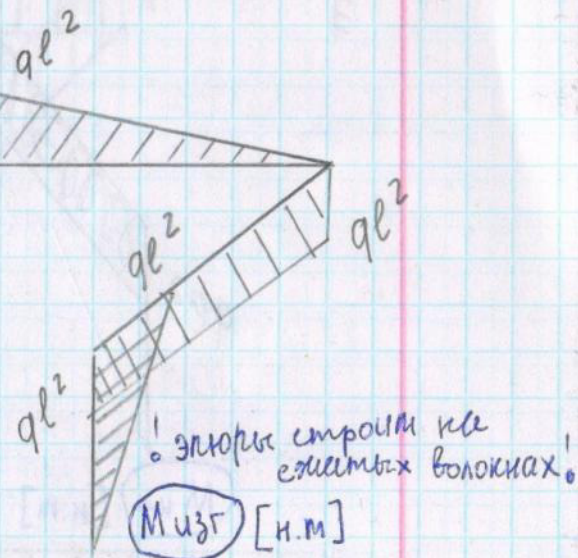 ql²
ql²
ql²
ql²
! эпюры строим на
сжатых волокнах!
Mизг [н.м]